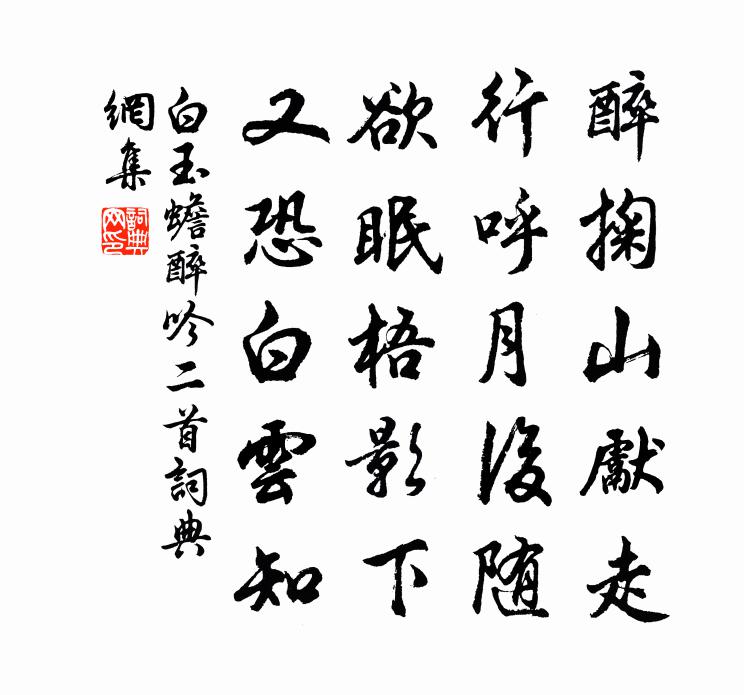 醉掬山獻走
行呼月後随
欲眠梧影下
又恐白雲知
白玉蟾醉吟二首詞典
網集
詞典网印